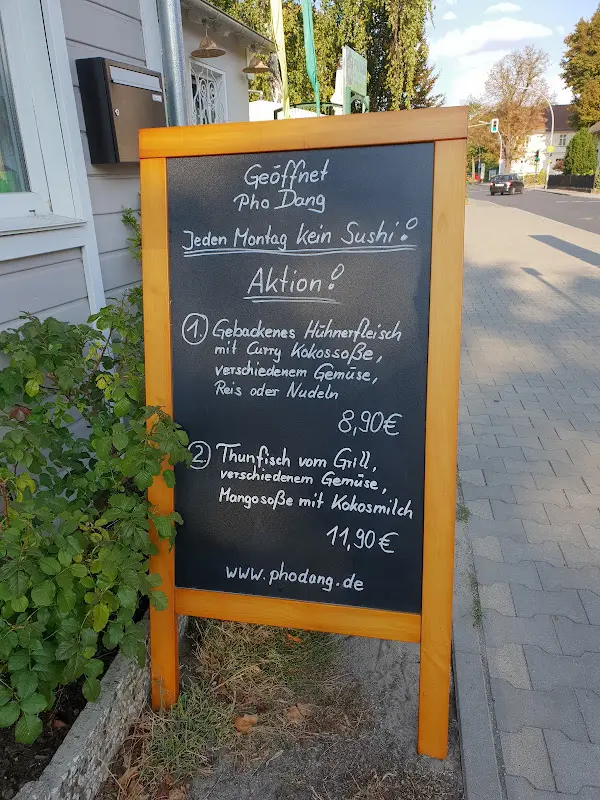 Geöffnet
Pho Dang
Jeden Montag kein Sushi!
Aktion!
1. Gebackenes Hühnerfleisch
mit Curry Kokossoße,
verschiedenem Gemüse,
Reis oder Nudeln
8,90€
2 Thunfisch vom Grill,
verschiedenem Gemüse,
Mangosoße mit Kokosmilch
11,90€
www.phodang.de